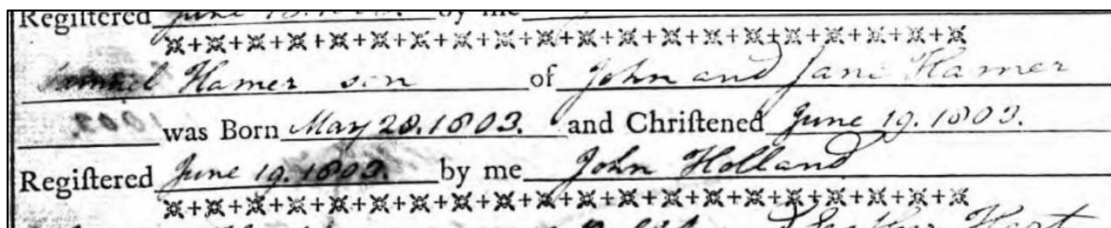 Registered June 13. 1803. by me
Samuel Hamer son of John and Jane Hamer
was Born May 28. 1803. and Chriſtened June 19. 1803.
Regiſtered June 19. 1803. by me John Holland
Hart